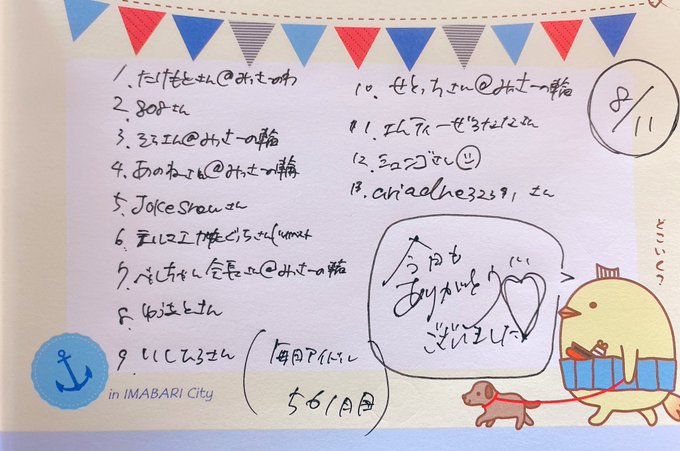 1. たけもとさん@みっさーのわ
2. 808さん
3. そらさん@みっさーの輪
4. あのねさん@みっさーの輪
5. JOKESnowさん
6. テルマエ
7. べしちゃん会長さん@みっさーの輪
8. ゆうまとさん
9. いしひろさん
10. せとっちさん@みっさーの輪
11. エムティーぜろ
12. ミュンゴさん
13. ariadne32391 さん
8/11
今日も
ありがとう
ございました
毎日アイドル
561日目
in IMABARI City
どこいくの